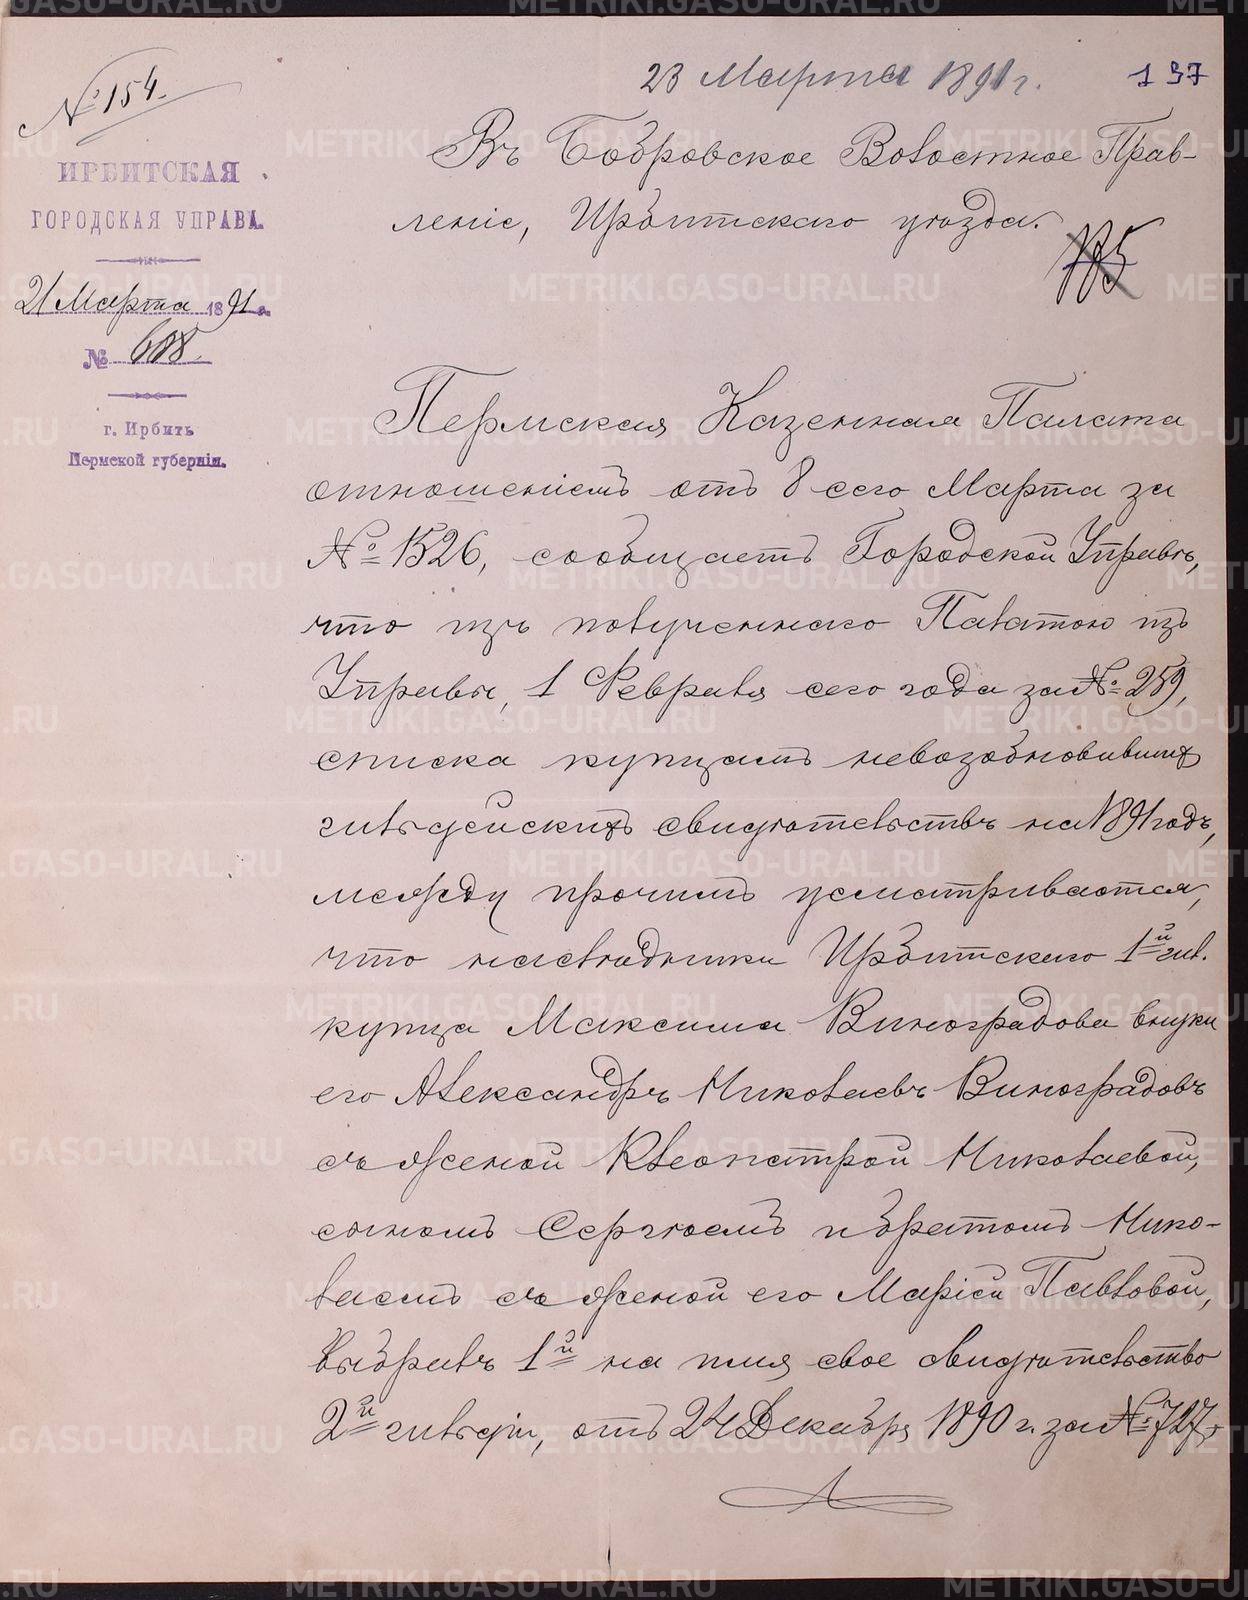 № 154.
23 Марта 1891 г.
197
ИРБИТСКАЯ
ГОРОДСКАЯ УПРАВА.
21 Марта 1891 г.
№ 688.
г. Ирбить
Пермской губерніи.
Въ Бобровское Волостное Прав-
леніе, Ирбитскаго уѣзда.
Пермская Казенная Палата
отношеніемъ отъ 8 сего Марта за
№ 1526, сообщаетъ Городской Управѣ,
что изъ полученнаго Палатою изъ
Управы, 1 Февраля сего года за № 259,
списка купцамъ невозобновившихъ
гильдейскихъ свидѣтельствъ на 1891 годъ,
между прочимъ усматривается,
что наслѣдники Ирбитскаго 1й гил.
купца Максима Виноградова внуки
его Александръ Николаевъ Виноградовъ
съ женой Клеопатрой Николаевой,
сыномъ Сергѣемъ и братомъ Нико-
лаемъ съ женой его Маріей Павловой,
выбравъ 1й на имя свое свидѣтельство
2й гильдіи, отъ 24 Декабря 1890 г. за № 727,
METRIKI.GASO-URAL.RU